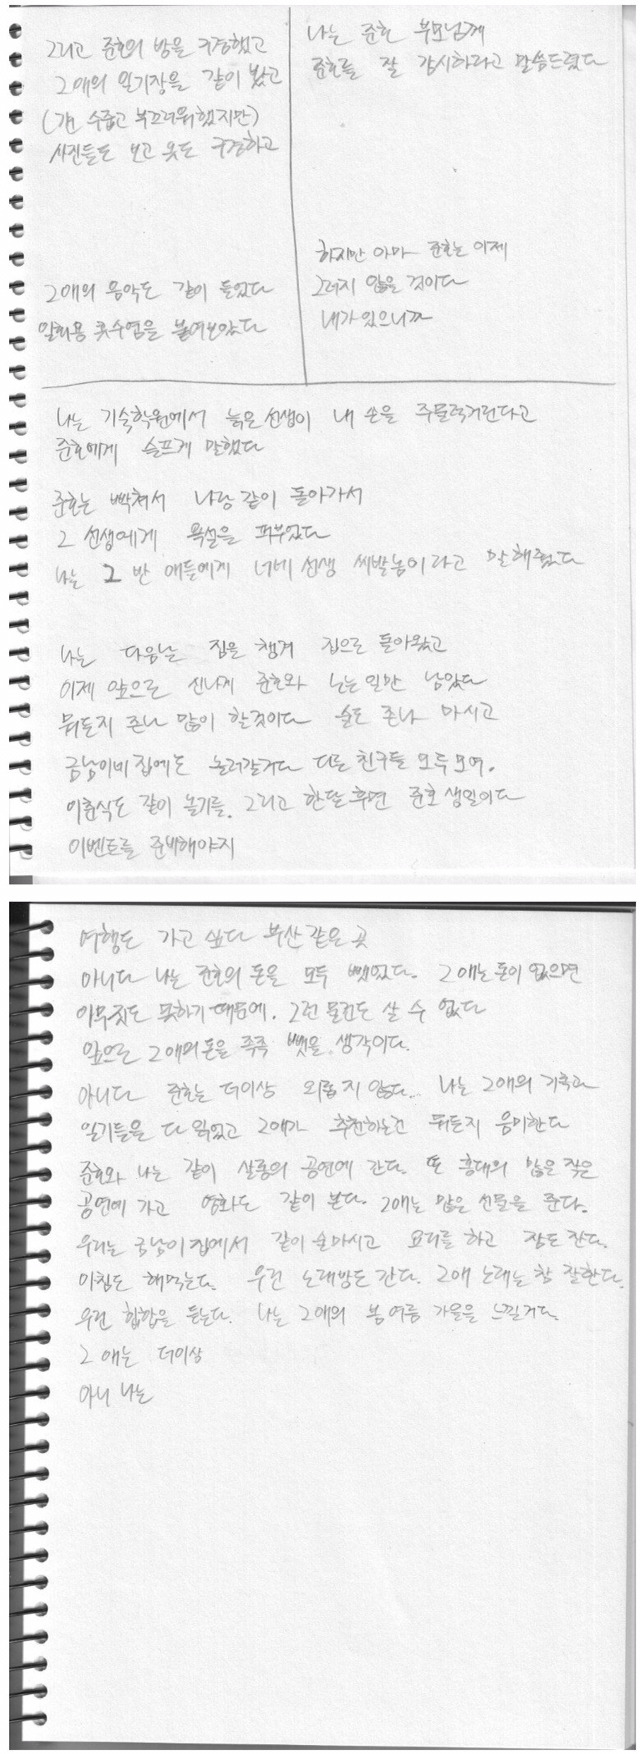 그리고 준호의 방을 구경했고
그애의 일기장을 같이 봤고
(걘 수줍고 부끄러워했지만)
사진들도 보고 옷도 구경하고
그애의 음악도 같이 들었다
일회용 콧수염을 붙여보았다
나는 준호 부모님께
준호를 잘 감시하라고 말씀드렸다
하지만 아마 준호는 이제
그러지 않을 것이다
내가 있으니까
나는 기술학원에서 늙은 선생이 내 손을 주물럭거린다고
준호에게 슬프게 말했다
준호는 빡쳐서 나랑 같이 돌아가서
그 선생에게 욕설을 퍼부었다
나는 그 반 애들에게 너네 선생 씨발놈이라고 말해줬다
나는 다음날 짐을 챙겨 집으로 돌아왔고
이제 앞으로 신나게 준호와 노는 일만 남았다
뭐든지 존나 많이 할것이다 술도 존나 마시고
금남이네 집에도 놀러갈거다 다른 친구들 모두 모여.
이춘식도 같이 놀기를. 그리고 한달 후면 준호 생일이다
이벤트를 준비해야지
여행도 가고 싶다 부산 같은 곳
아니다 나는 준호의 돈을 모두 뺏었다. 그애는 돈이 없으면
아무것도 못하기 때문에. 그런 물건도 살 수 없다
앞으로 그애의 돈을 족족 뺏을 생각이다.
아니다 준호는 더이상 외롭지 않다. 나는 그애의 기록과
일기들을 다 읽었고 그애가 추천하는건 뭐든지 음미한다
준호와 나는 같이 살롱의 공연에 간다. 또 홍대의 많은 작은
공연에 가고 영화도 같이 본다. 그애는 많은 선물을 준다.
우리는 금남이 집에서 같이 술마시고 요리를 하고 잠도 잔다.
아침도 해먹는다. 우린 노래방도 간다. 그애 노래는 참 잘한다.
우린 힙합을 듣는다. 나는 그애의 봄 여름 가을을 느낄거다.
그 애는 더이상
아니 나는